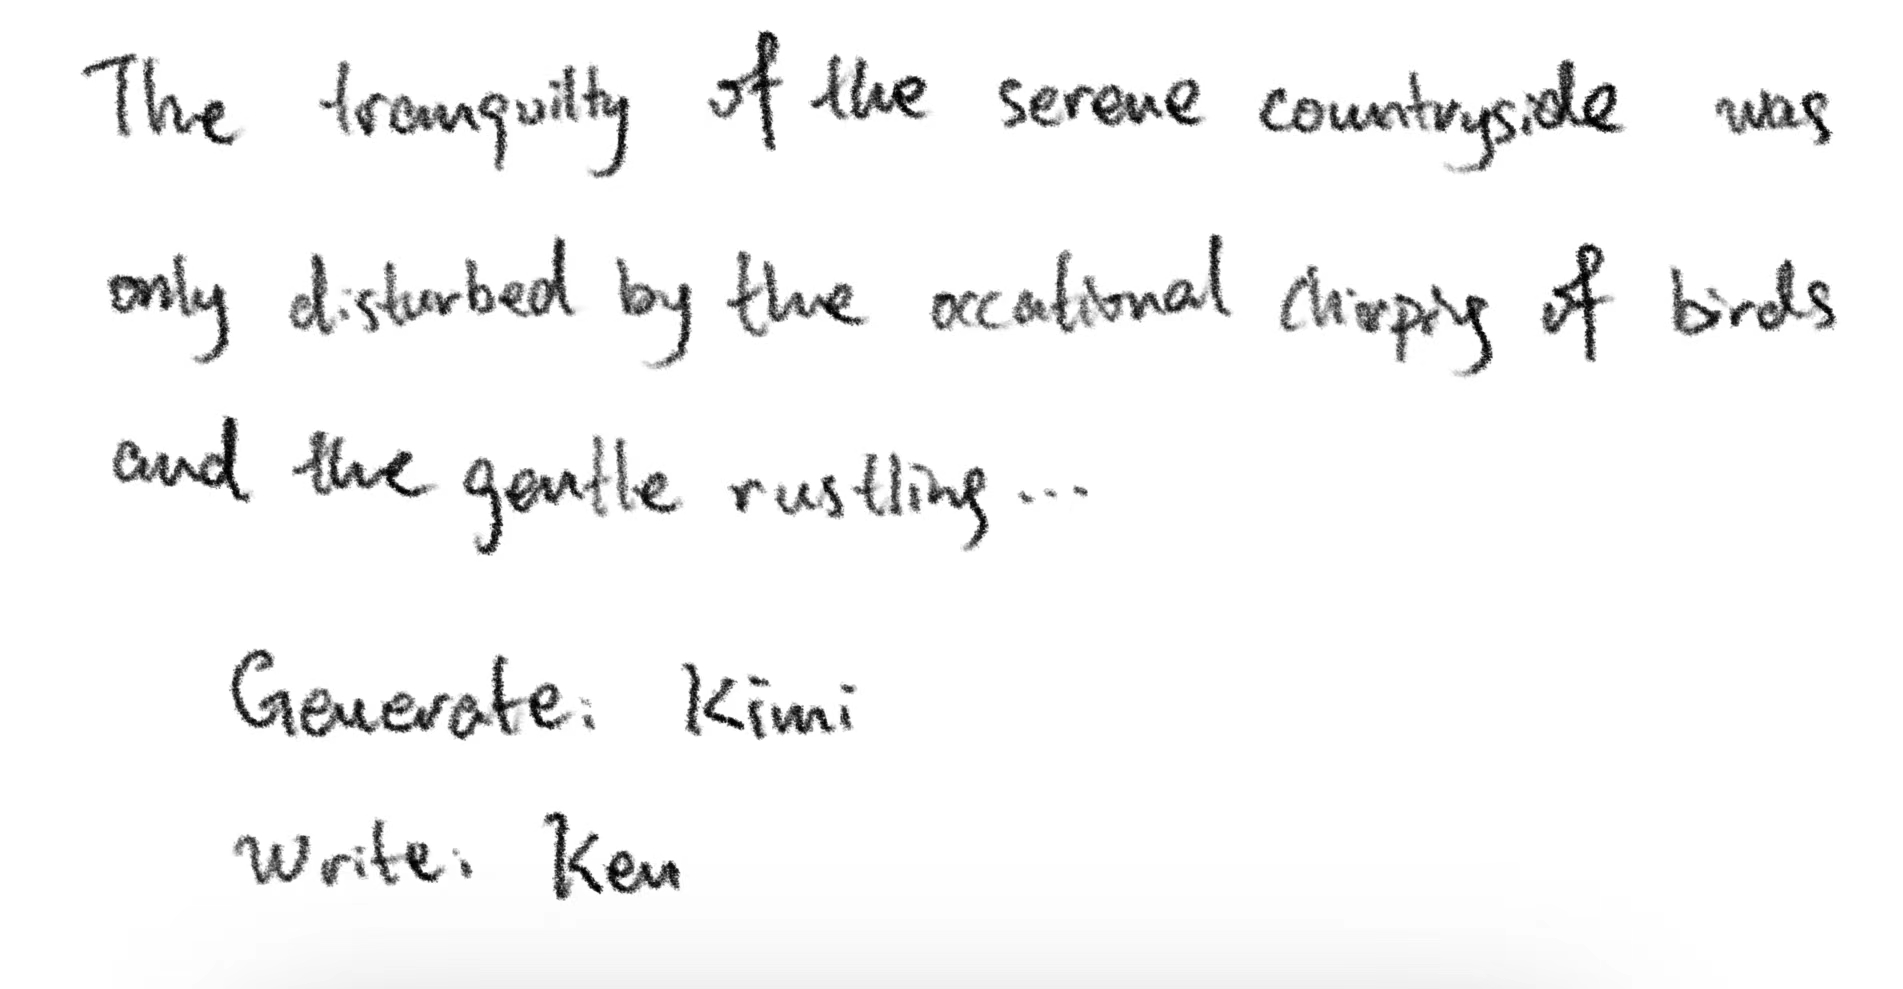 The tranquilty of the serene countryside was
only disturbed by the occational chirping of birds
and the gentle rustling...
Generate: Kimi
Write: Ken